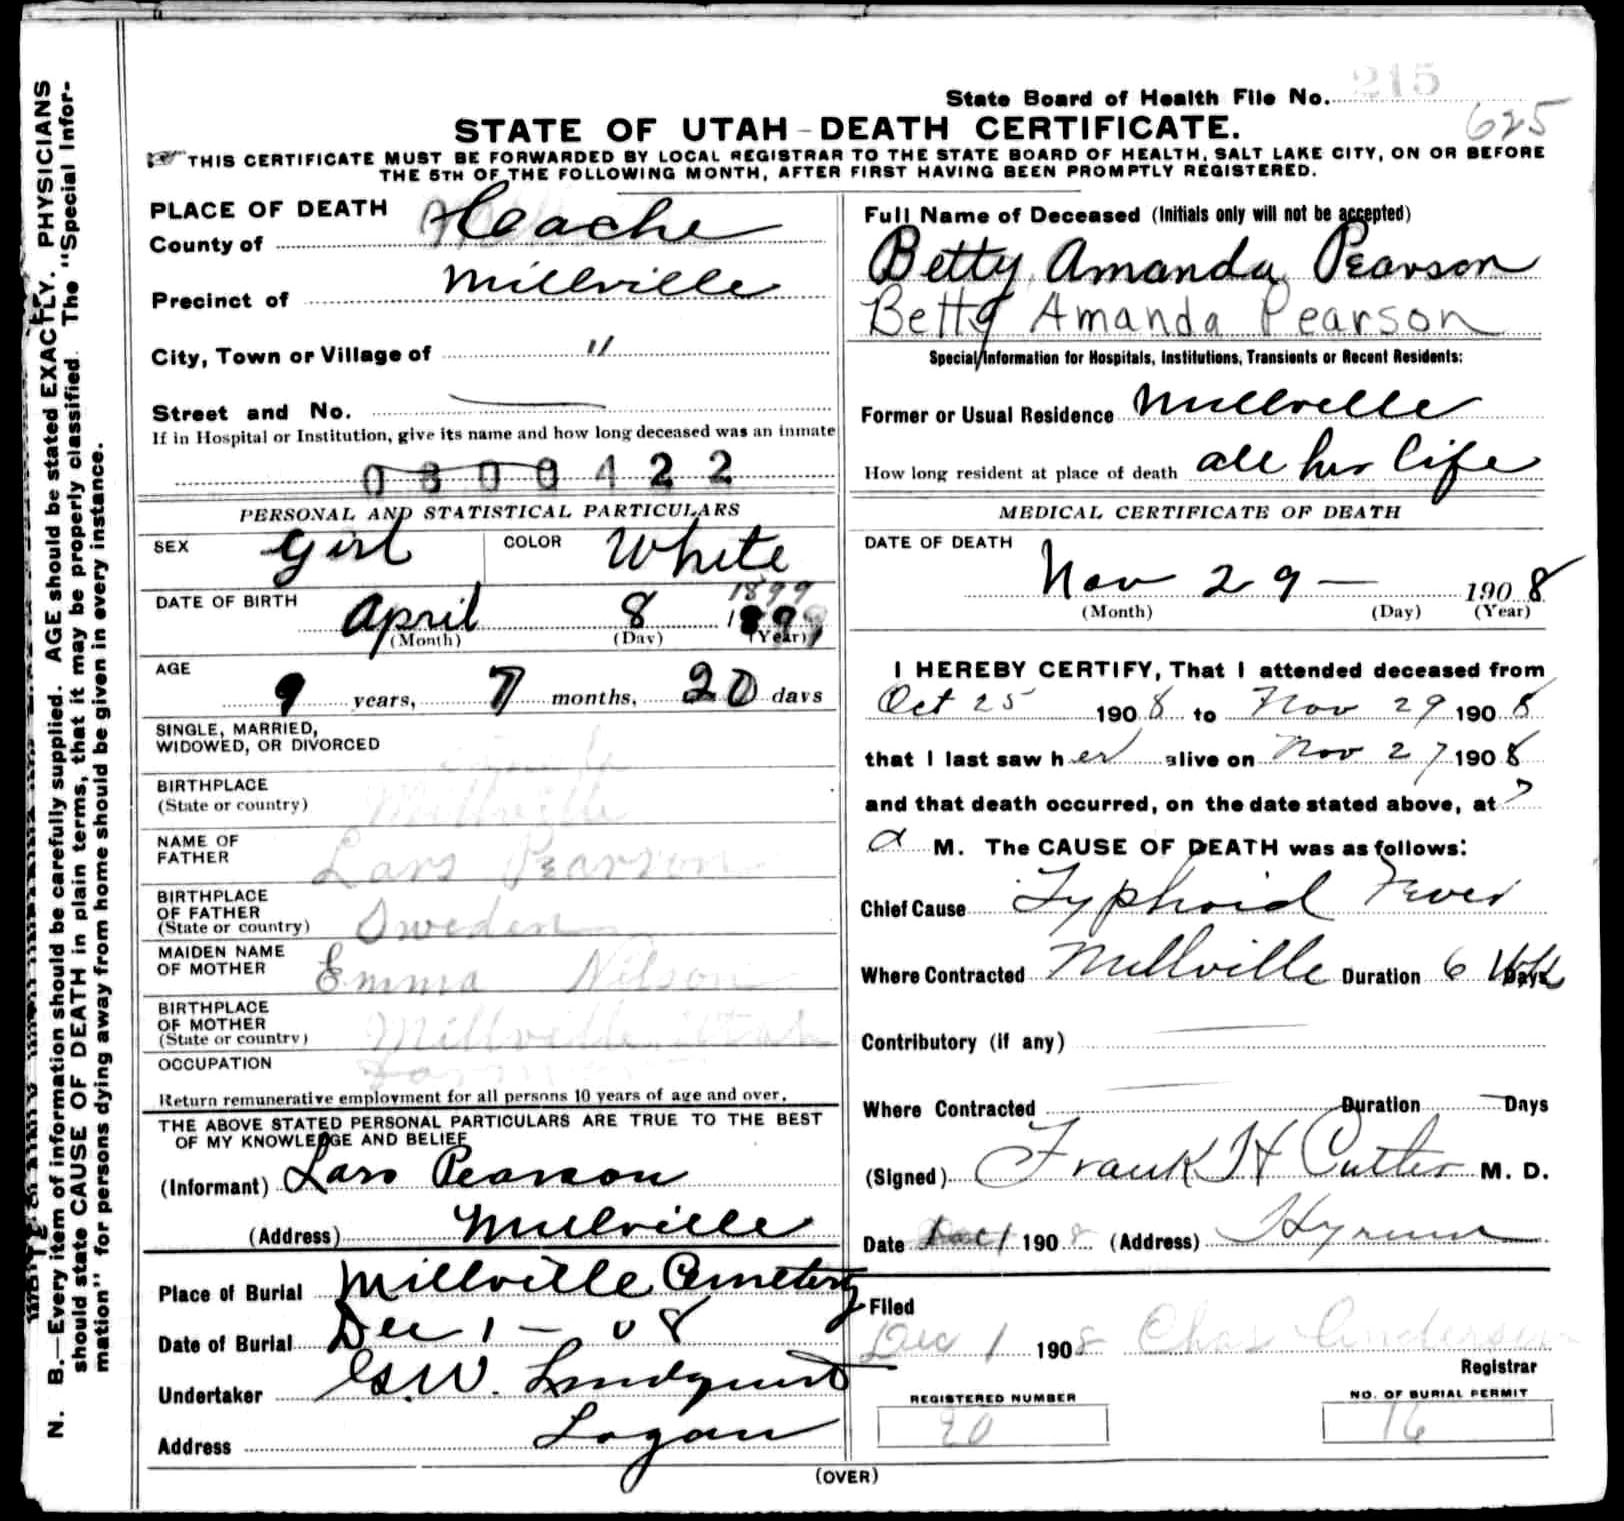 N. B.—Every item of information should be carefully supplied. AGE should be stated EXACTLY. PHYSICIANS
should state CAUSE OF DEATH in plain terms, that it may be properly classified. The "Special Infor-
mation" for persons dying away from home should be given in every instance.
215
State Board of Health File No.
625
STATE OF UTAH - DEATH CERTIFICATE.
THIS CERTIFICATE MUST BE FORWARDED BY LOCAL REGISTRAR TO THE STATE BOARD OF HEALTH, SALT LAKE CITY, ON OR BEFORE
THE 5TH OF THE FOLLOWING MONTH, AFTER FIRST HAVING BEEN PROMPTLY REGISTERED.
PLACE OF DEATH
County of Cache
Precinct of Millville
City, Town or Village of "
Street and No.
If in Hospital or Institution, give its name and how long deceased was an inmate
0300422
PERSONAL AND STATISTICAL PARTICULARS
SEX Girl COLOR White
DATE OF BIRTH April 8 1899
1899
(Month) (Day) (Year)
AGE
9 years, 7 months, 20 days
SINGLE, MARRIED,
WIDOWED, OR DIVORCED
BIRTHPLACE
(State or country) Millville
NAME OF
FATHER Lars Pearson
BIRTHPLACE
OF FATHER
(State or country) Sweden
MAIDEN NAME
OF MOTHER Emma Nilson
BIRTHPLACE
OF MOTHER
(State or country) Millville Utah
OCCUPATION
Return remunerative employment for all persons 10 years of age and over.
THE ABOVE STATED PERSONAL PARTICULARS ARE TRUE TO THE BEST
OF MY KNOWLEDGE AND BELIEF
(Informant) Lars Pearson
(Address) Millville
Place of Burial Millville Cemetery
Date of Burial Dec 1 - 08
Undertaker G.W. Lindquist
Address Logan
Full Name of Deceased (Initials only will not be accepted)
Betty Amanda Pearson
Betty Amanda Pearson
Special Information for Hospitals, Institutions, Transients or Recent Residents:
Former or Usual Residence Millville
How long resident at place of death all her life
MEDICAL CERTIFICATE OF DEATH
DATE OF DEATH
Nov 29 — 1908
(Month) (Day) (Year)
I HEREBY CERTIFY, That I attended deceased from
Oct 25 1908 to Nov 29 1908
that I last saw her alive on Nov 27 1908
and that death occurred, on the date stated above, at 7
a M. The CAUSE OF DEATH was as follows:
Chief Cause Typhoid Fever
Where Contracted Millville Duration 6 Wks Days
Contributory (if any)
Where Contracted Duration Days
(Signed) Frank H Cutler M. D.
Date Dec 1 1908 (Address) Hyrum
Filed
Dec 1 1908 Chas Anderson
Registrar
REGISTERED NUMBER
20
NO. OF BURIAL PERMIT
16
(OVER)